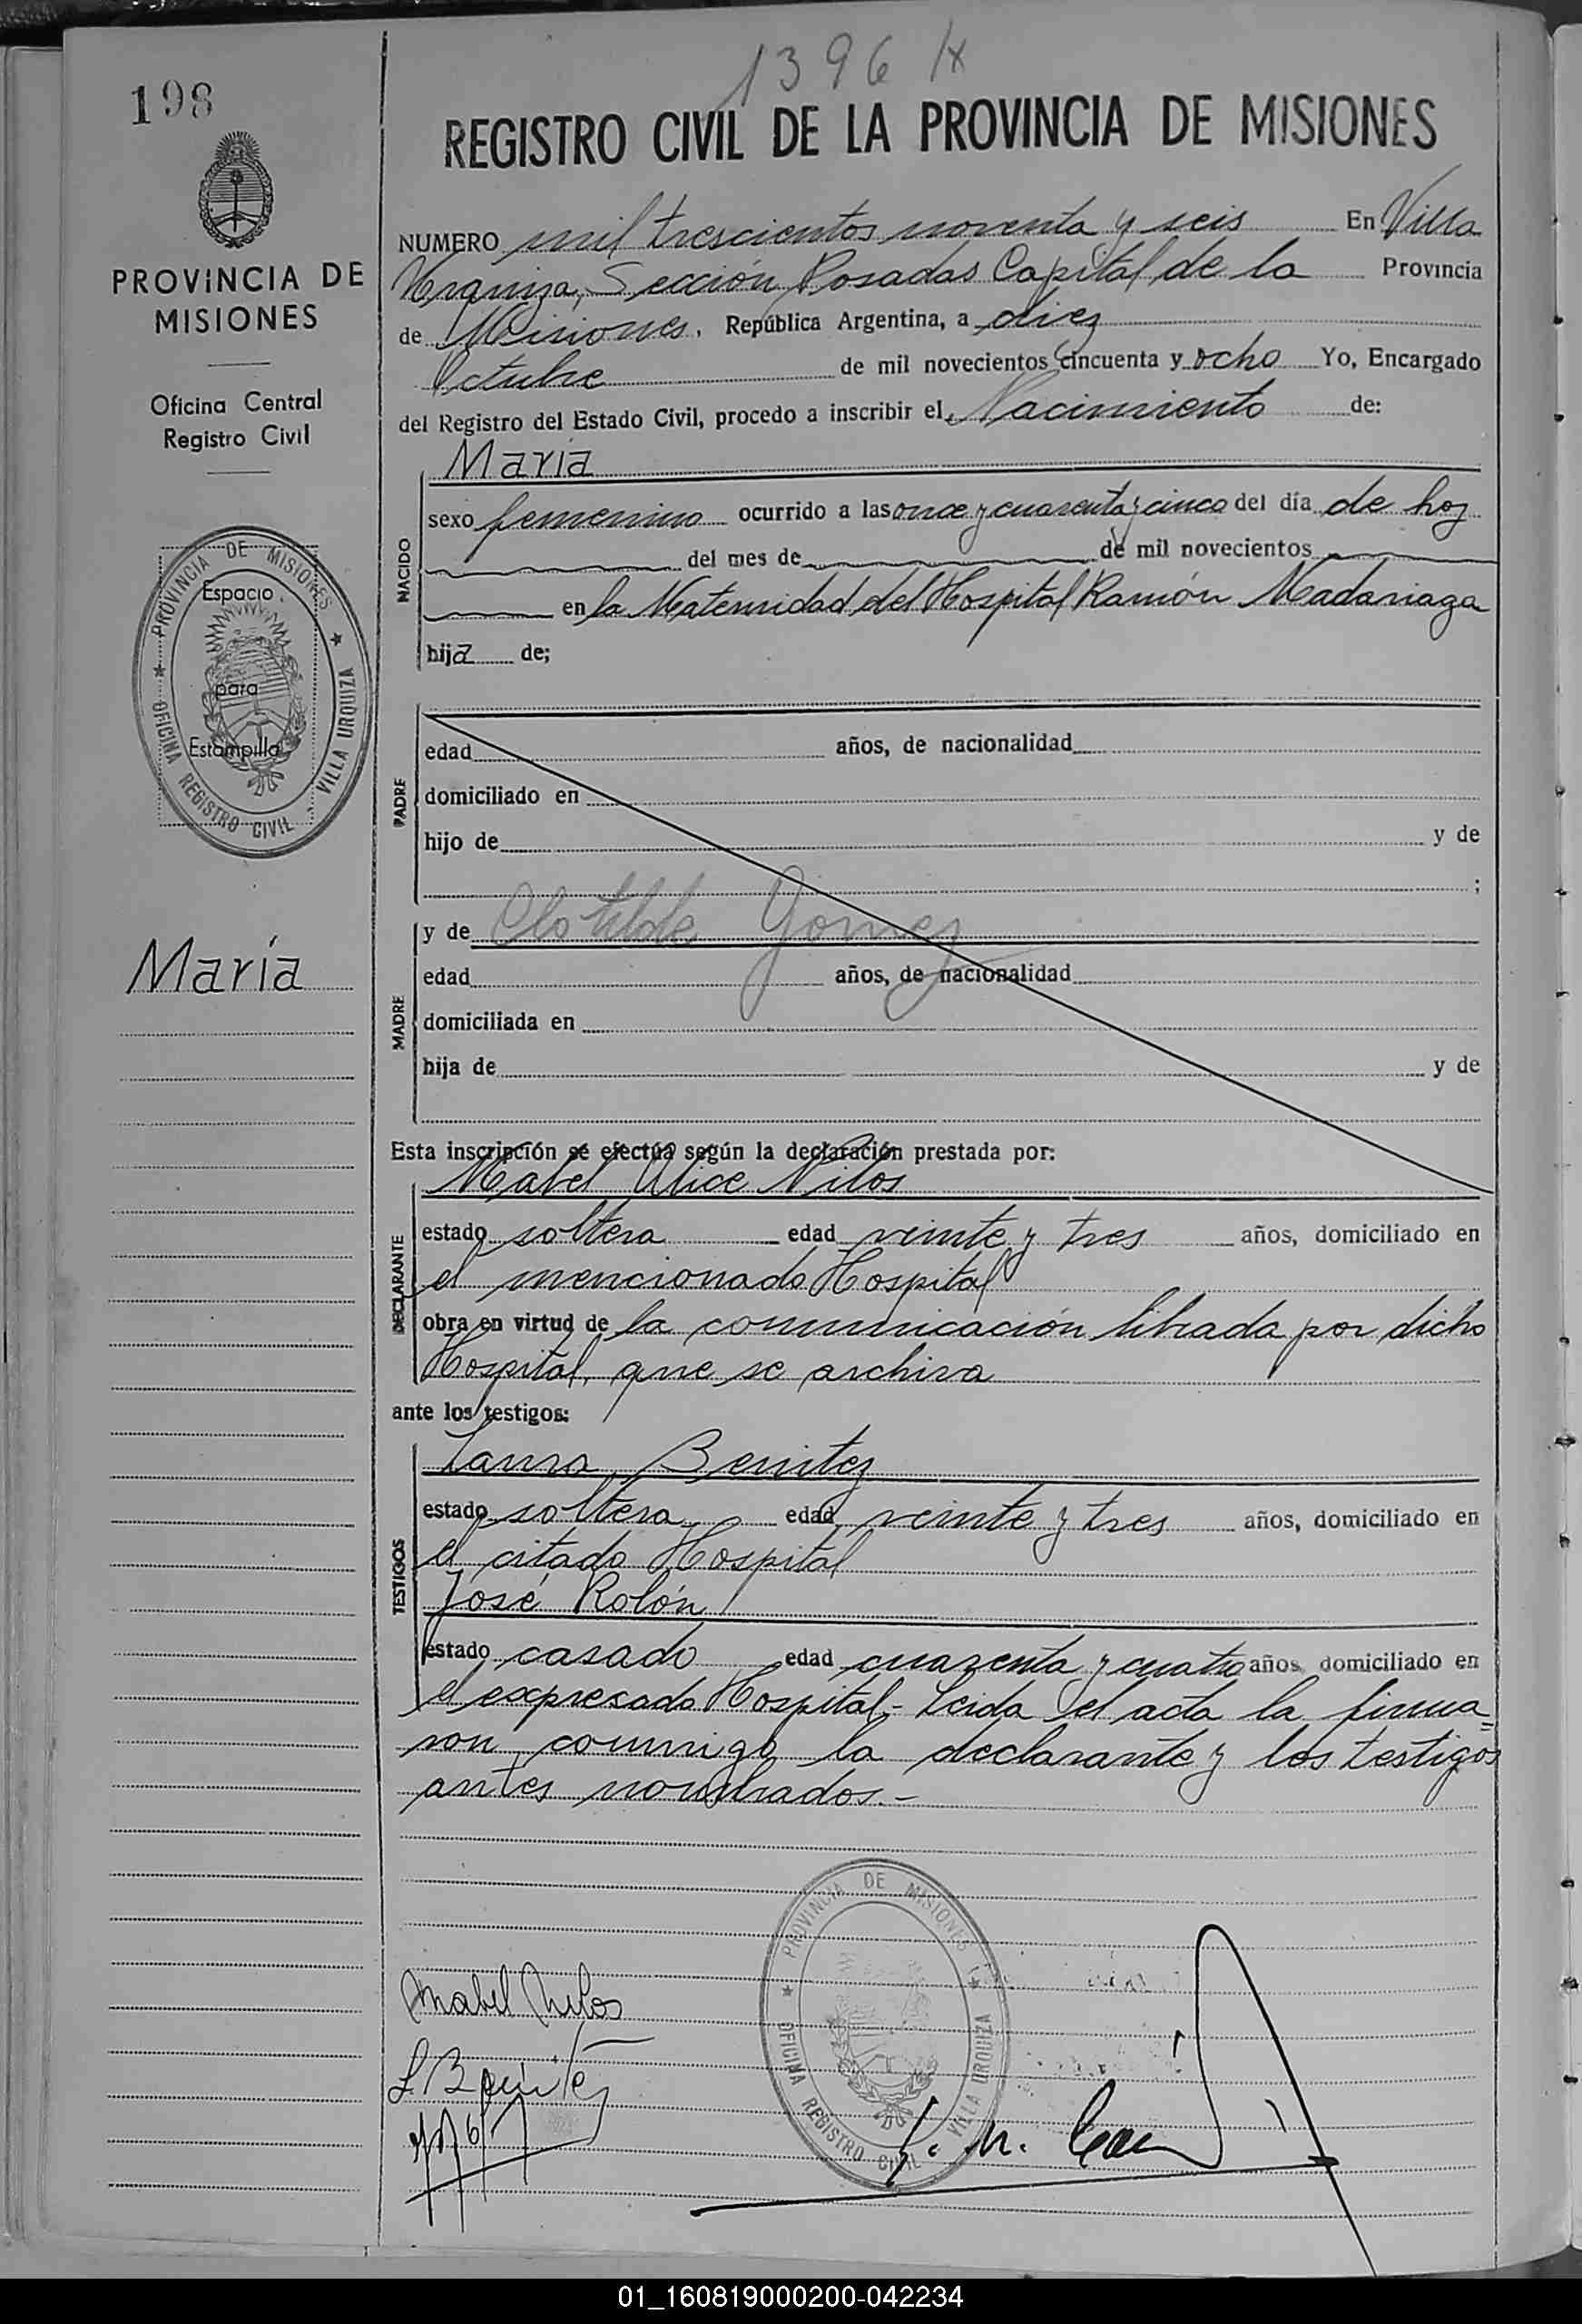 1396
198
REGISTRO CIVIL DE LA PROVINCIA DE MISIONES
PROVINCIA DE
MISIONES
Oficina Central
Registro Civil
NUMERO mil trescientos noventa y seis En Villa
Urquiza, Sección Posadas Capital de la Provincia
de Misiones. República Argentina, a diez
Octubre de mil novecientos cincuenta y ocho Yo, Encargado
del Registro del Estado Civil, procedo a inscribir el Nacimiento de:
NACIDO
María
sexo femenino ocurrido a las once y cuarenta y cinco del día de hoy
del mes de de mil novecientos
en la Maternidad del Hospital Ramón Madariaga
hija de;
PROVINCIA DE MISIONES
OFICINA REGISTRO CIVIL VILLA URQUIZA
Espacio
para
Estampilla
PADRE
edad años, de nacionalidad
domiciliado en
hijo de y de
;
MADRE
y de Clotilde Gomez
edad años, de nacionalidad
domiciliada en
hija de y de
María
Esta inscripción se efectúa según la declaración prestada por:
DECLARANTE
Mabel Alice Nilos
estado soltera edad veinte y tres años, domiciliado en
el mencionado Hospital
obra en virtud de la comunicación librada por dicho
Hospital, que se archiva
ante los testigos:
TESTIGOS
Laura Benitez
estado soltera edad veinte y tres años, domiciliado en
el citado Hospital
José Rolón
estado casado edad cuarenta y cuatro años, domiciliado en
el expresado Hospital.- Leida el acta la firma=
ron conmigo la declarante y los testigos
antes nombrados.-
PROVINCIA DE MISIONES
OFICINA REGISTRO CIVIL VILLA URQUIZA
Mabel Nilos
L. Benitez
01_160819000200-042234